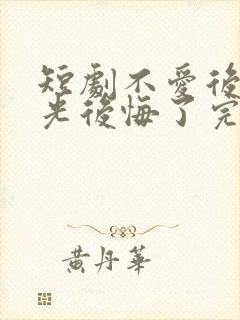 短劇不愛後
光後悔了完
黃丹華